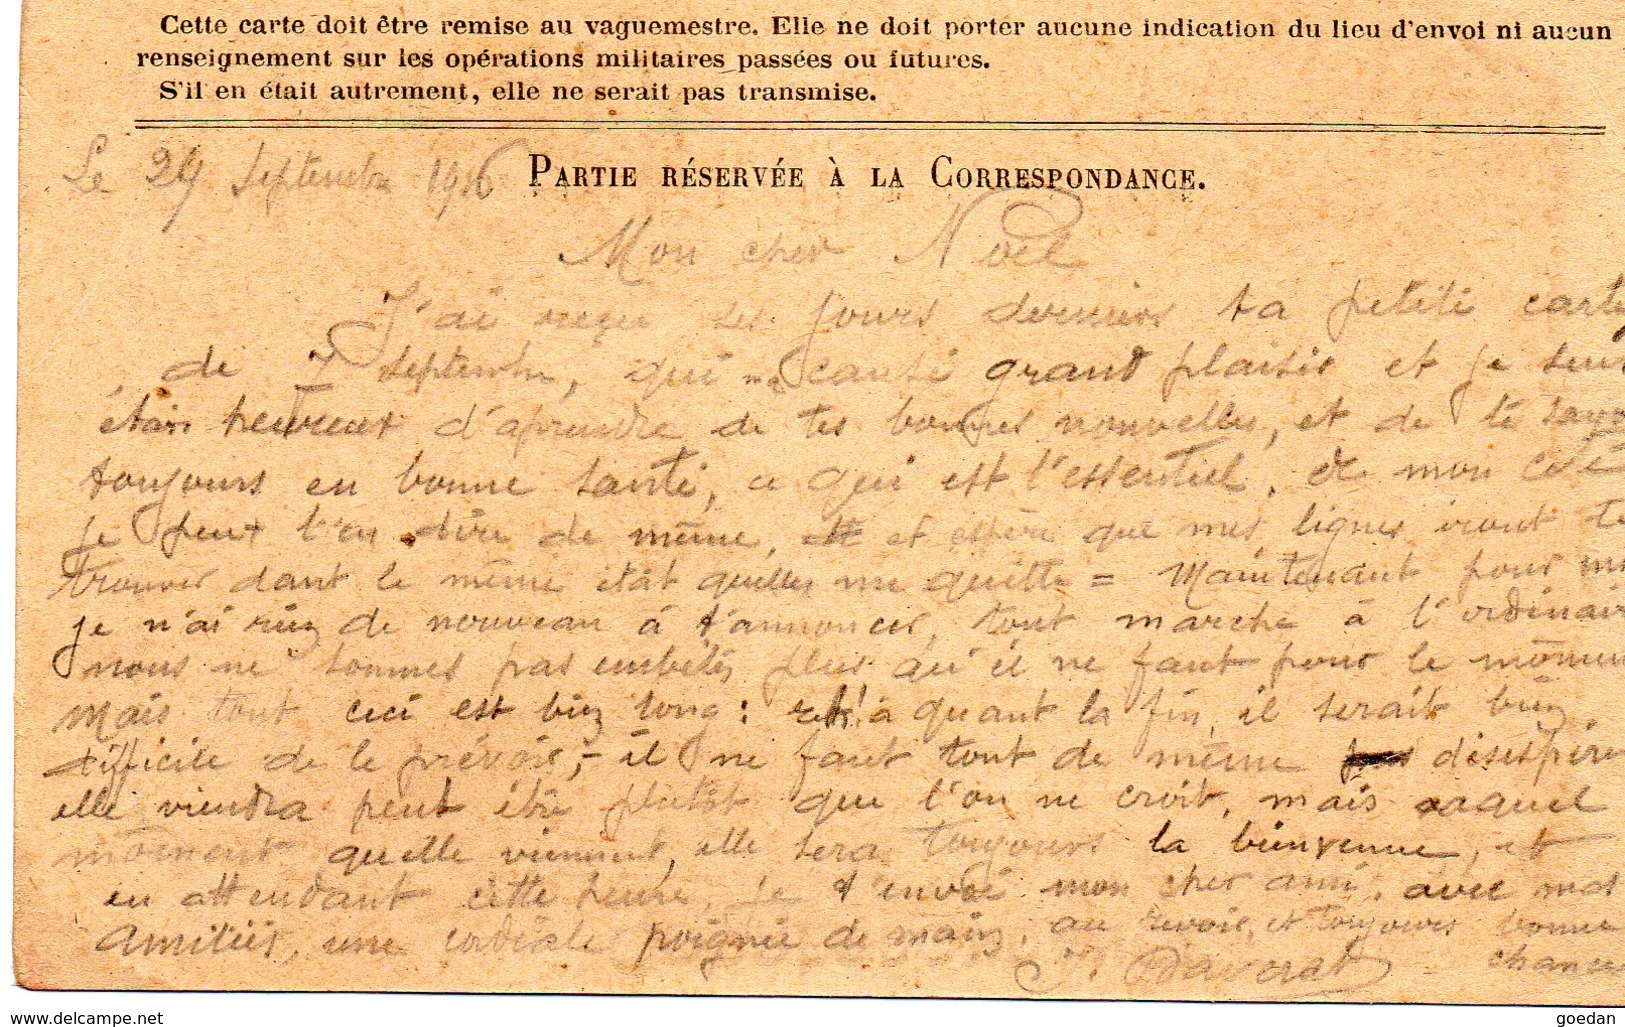 Cette carte doit être remise au vaguemestre. Elle ne doit porter aucune indication du lieu d'envoi ni aucun
renseignement sur les opérations militaires passées ou futures.
S'il en était autrement, elle ne serait pas transmise.
Le 29 Septembre 1916 PARTIE RÉSERVÉE À LA CORRESPONDANCE.
Mon cher Noël
J'ai reçu ses jours derniers ta petite carte
de 7 septembre, qui ma causé grand plaisir et je suis
étais heureux d'aprendre de tes bonnes nouvelles, et de te savoir
toujours en bonne santé, ce qui est l'essentiel. de mon côté
je peux t'en dire de même, et espère que mes lignes iront te
trouver dant le même état quelles me quitte = Maintenant pour moi
je n'ai rien de nouveau à t'annoncer, tout marche à l'ordinaire
nous ne sommes pas embetés plus qu'il ne faut pour le moment
Mais tout ceci est bien long : et à quant la fin, il serait bien
difficile de le prévoir, - il ne faut tout de même pas désespérer
elle viendra peut être plutôt que l'on ne croit, mais a quel
môment quelle viennent, elle sera toujours la bienvenue, et
en attendant cette heure, je t'envoé mon cher ami, avec mes
Amitiés, une cordiale poignée de main, au revoir, et toujours bonne
chance
Daverat
www.delcampe.net
goedan